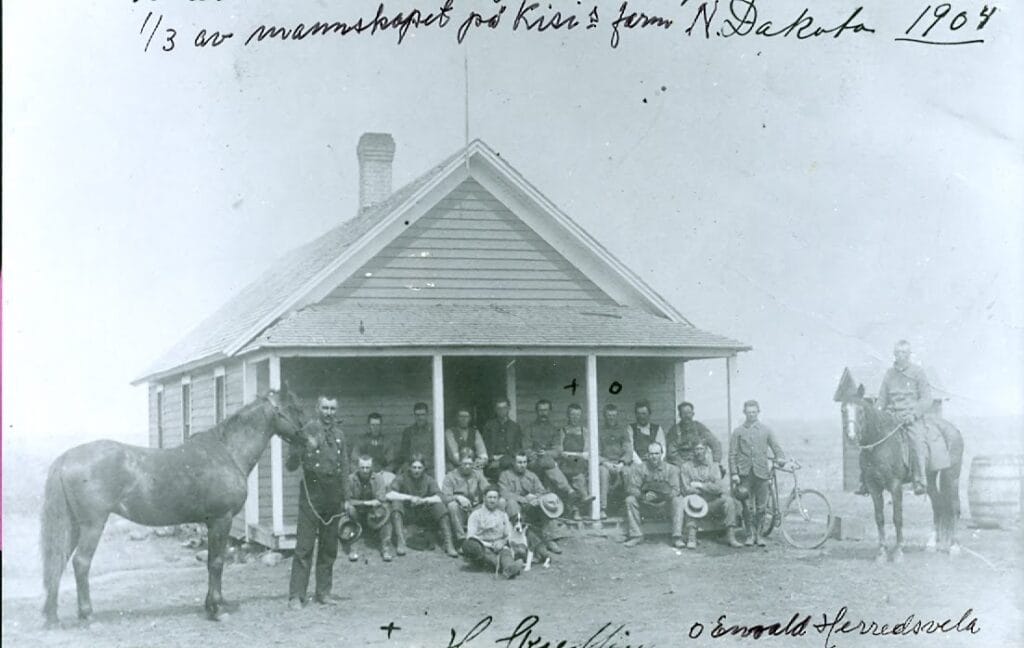 1/3 av mannskapet på Kisis farm N. Dakota 1904
+ o
+ H
o Enwald Herredsvela